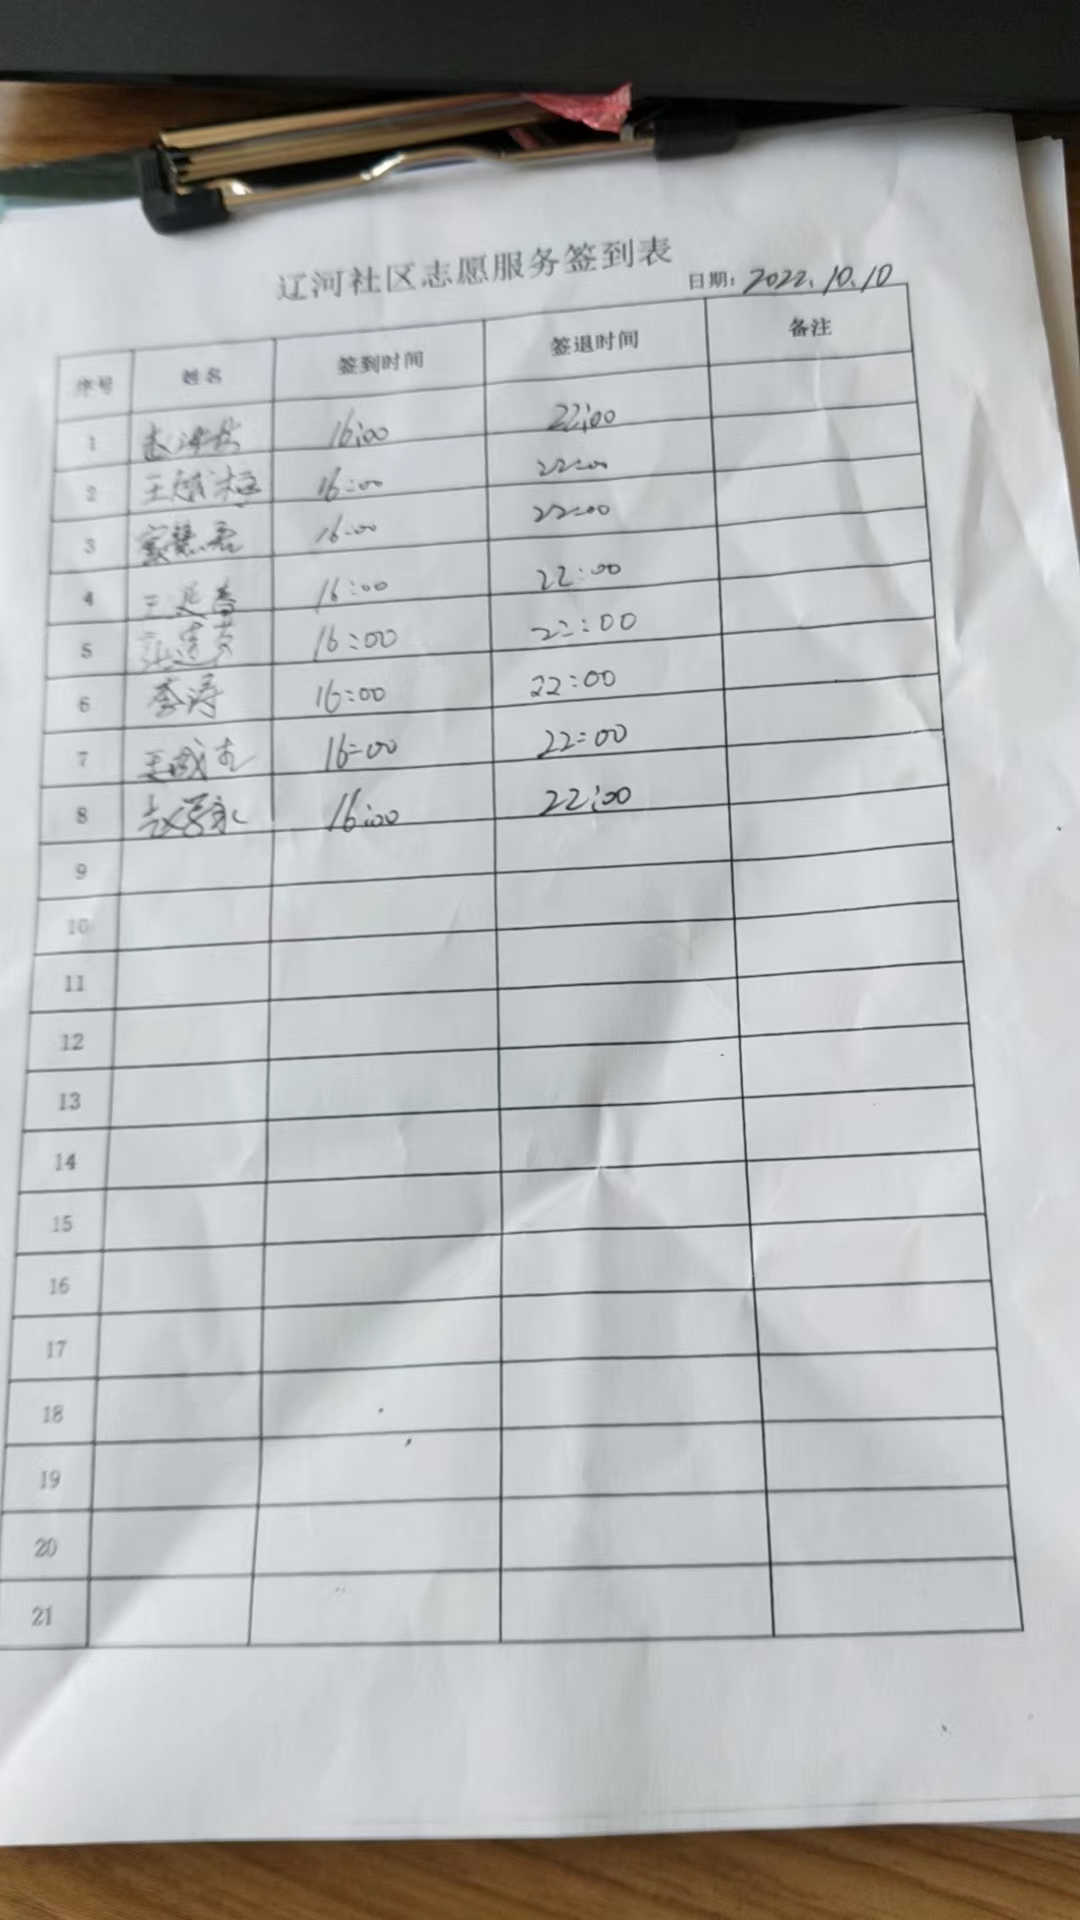 辽河社区志愿服务签到表
日期: 2022.10.10
序号 姓名 签到时间 签退时间 备注
1 16:00 22:00
2 王 16:00 22:00
3 16:00 22:00
4 王 16:00 22:00
5 16:00 22:00
6 李涛 16:00 22:00
7 王成 16:00 22:00
8 赵学永 16:00 22:00
9
10
11
12
13
14
15
16
17
18
19
20
21